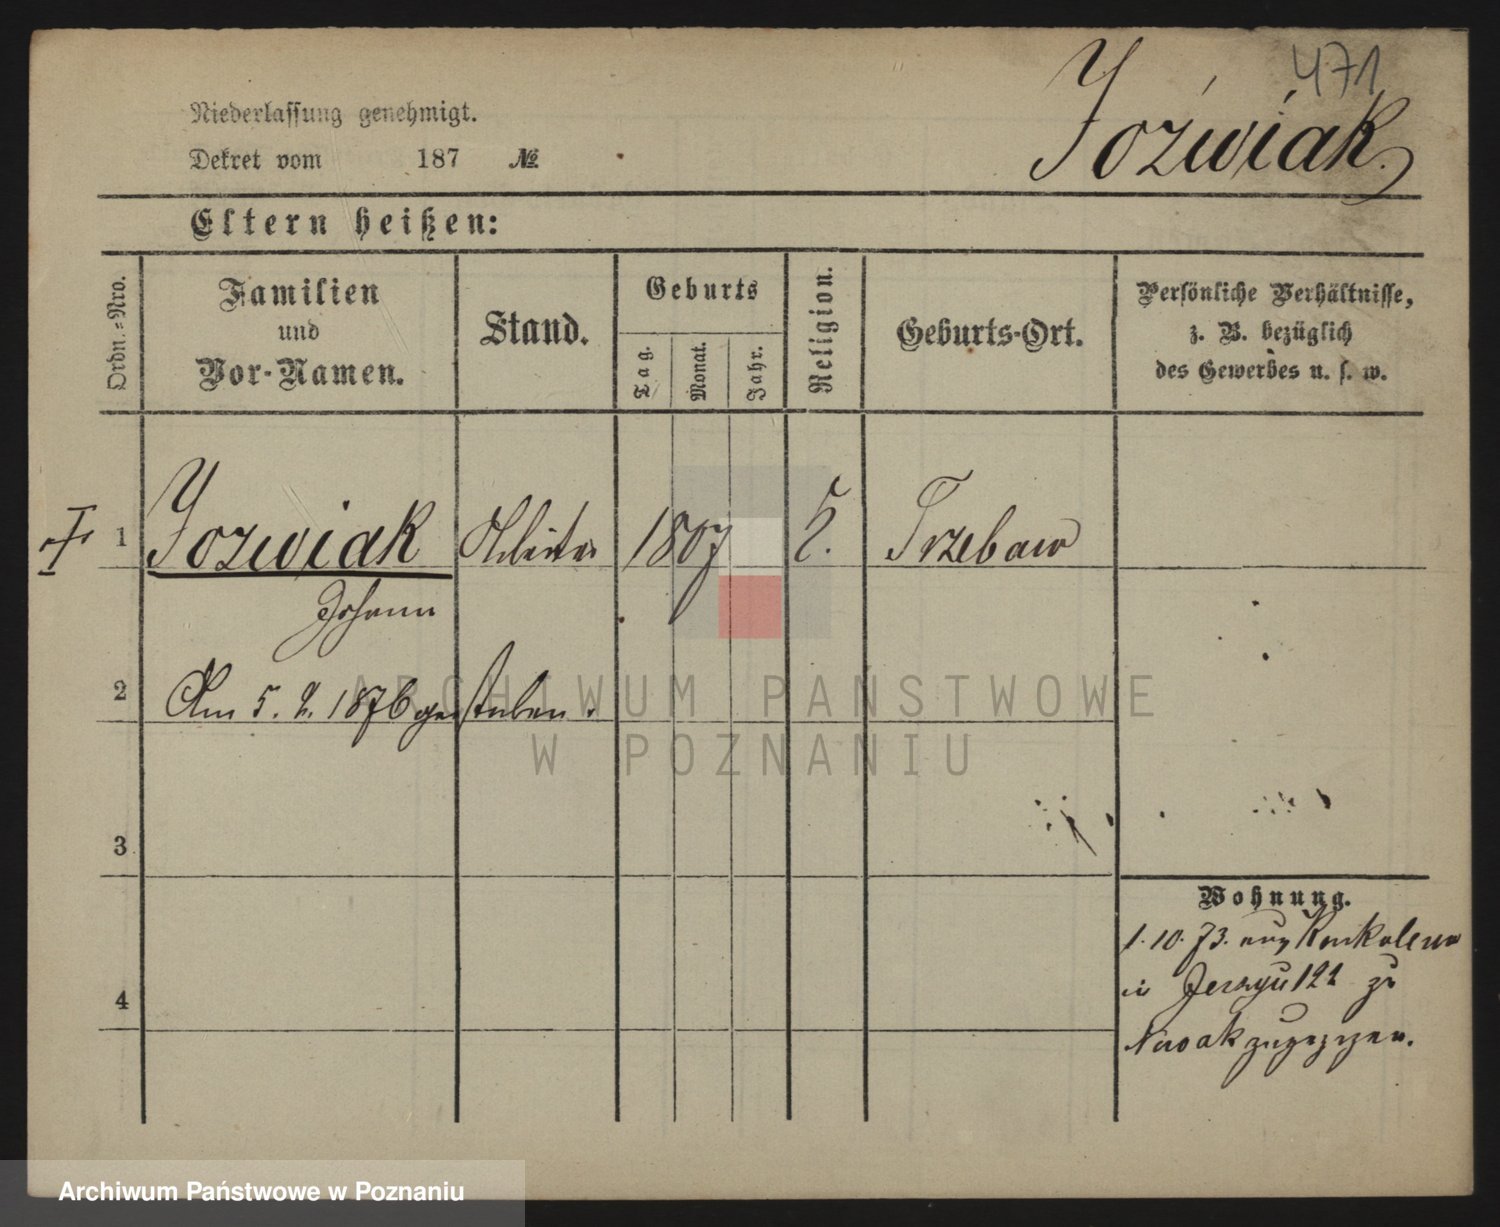 471
Jóźwiak.
Niederlassung genehmigt.
Dekret vom 187 №
Eltern heißen:
Ordn.-Nro.
Familien
und
Vor-Namen.
Stand.
Geburts
Tag.
Monat.
Jahr.
Religion.
Geburts-Ort.
Persönliche Verhältnisse,
z. B. bezüglich
des Gewerbes u. s. w.
1 Jozwiak Arbeiter 1807 Trzebaw
Johann
2 Am 5. 2. 1876 gestorben.
3
4
Wohnung.
1. 10. 73. aus
in Jerzyu 122 zu
Nowak zugezogen.
ARCHIWUM PAŃSTWOWE
W POZNANIU
Archiwum Państwowe w Poznaniu